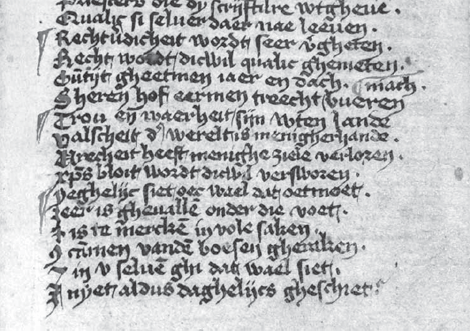 Priesters die dy scrijftuere wtgheue.
Qualic si seluer daer nae leeuen.
Rechtůdicheit wordt seer ůgheten.
Recht wordt dicwil qualic ghemeten.
Gůtijt gheetmen iaer en dach. mach.
Sheren hof eermen trecht vueren
Trou eñ waerheit sijn wten lande
Valscheit dʼ werelt is menigherhande.
Ghirecheit heeft menighe ziele verloren.
xp̃s bloit wordt dicwil versworen.
Yeghelijc siet oec wael dat oetmoet.
Zeer is gheuallẽ onder die voet.
is te mercke in vole saken.
cõmen vandẽ boesen gheraken.
in v seluẽ ghi dat wael siet.
nyet aldus daghelijcs gheschiet.